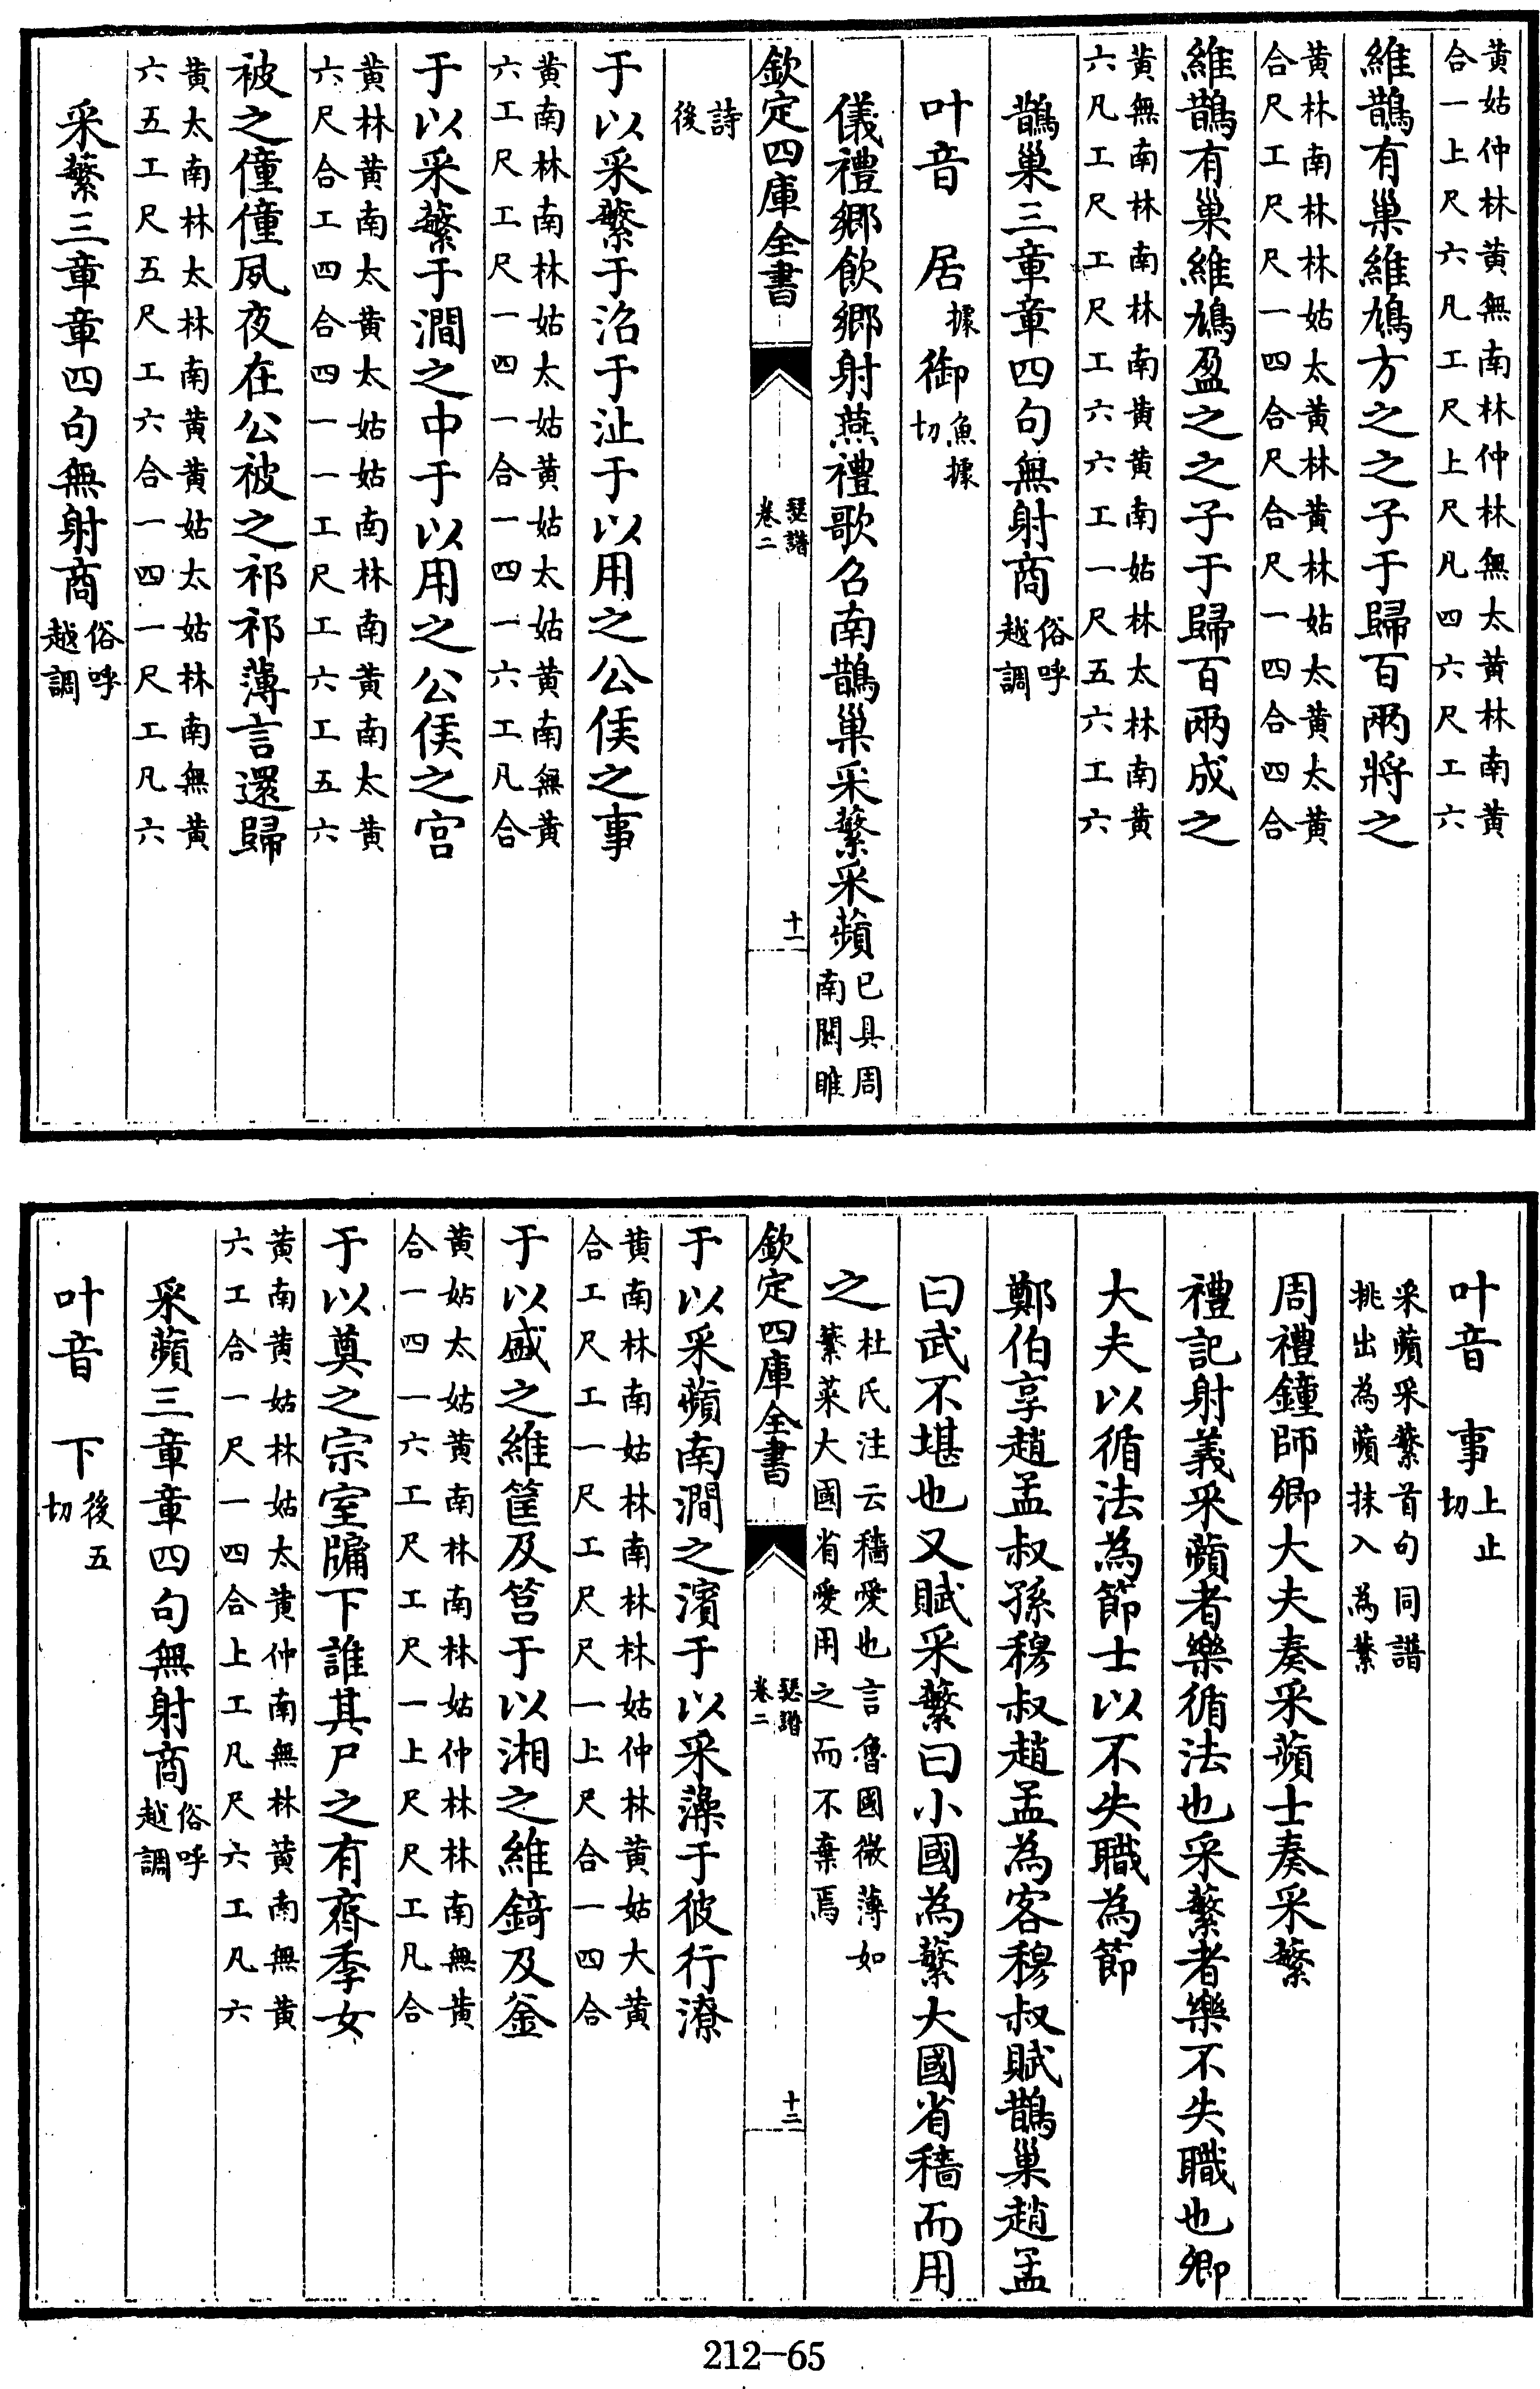 黄姑仲林黄無南林仲林無太黄林南黄
合一上尺六凡工尺上尺凡四六尺工六
維鵲有巢維鳩方之之子于歸百兩將之
黄林南林林姑太黄林黄林姑太黄太黄
合尺工尺尺一四合尺合尺一四合四合
維鵲有巢維鳩盈之之子于歸百兩成之
黄無南林南林南黄黄南姑林太林南黄
六凡工尺工尺工六六工一尺五六工六
鵲巢三章章四句無射商俗呼越調
叶音 居據御魚據切
儀禮鄉飲鄉射燕禮歌召南鵲巢采蘩采蘋已具周南關雎
欽定四庫全書 瑟譜卷二 十一
詩後
于以采蘩于沼于沚于以用之公侯之事
黄南林南林姑太姑黄姑太姑黄南無黄
六工尺工尺一四一合一四一六工凡合
于以采蘩于澗之中于以用之公侯之宫
黄林黄南太黄太姑姑南林南黄南太黄
六尺合工四合四一一工尺工六工五六
被之僮僮夙夜在公被之祁祁薄言還歸
黄太南林太林南黄黄姑太姑林南無黄
六五工尺五尺工六合一四一尺工凡六
采蘩三章章四句無射商俗呼越調
叶音 事上止切
采蘋采蘩首句同譜
挑出為蘋抹入為蘩
周禮鐘師卿大夫奏采蘋士奏采蘩
禮記射義采蘋者樂循法也采蘩者樂不失職也卿
大夫以循法為節士以不失職為節
鄭伯享趙孟叔孫穆叔趙孟為客穆叔賦鵲巢趙孟
曰武不堪也又賦采蘩曰小國為蘩大國省穡而用
之杜氏注云穡愛也言魯國微薄如蘩菜大國省愛用之而不棄焉
欽定四庫全書 瑟譜卷二 十二
于以采蘋南澗之濱于以采藻于彼行潦
黄南林南姑林南林林姑仲林黄姑大黄
合工尺工一尺工尺尺一上尺合一四合
于以盛之維筐及筥于以湘之維錡及釜
黄姑太姑黄南林南林姑仲林林南無黄
合一四一六工尺工尺一上尺尺工凡合
于以奠之宗室牖下誰其尸之有齊季女
黄南黄姑林姑太黄仲南無林黄南無黄
六工合一尺一四合上工凡尺六工凡六
采蘋三章章四句無射商俗呼越調
叶音 下後五切
212-65